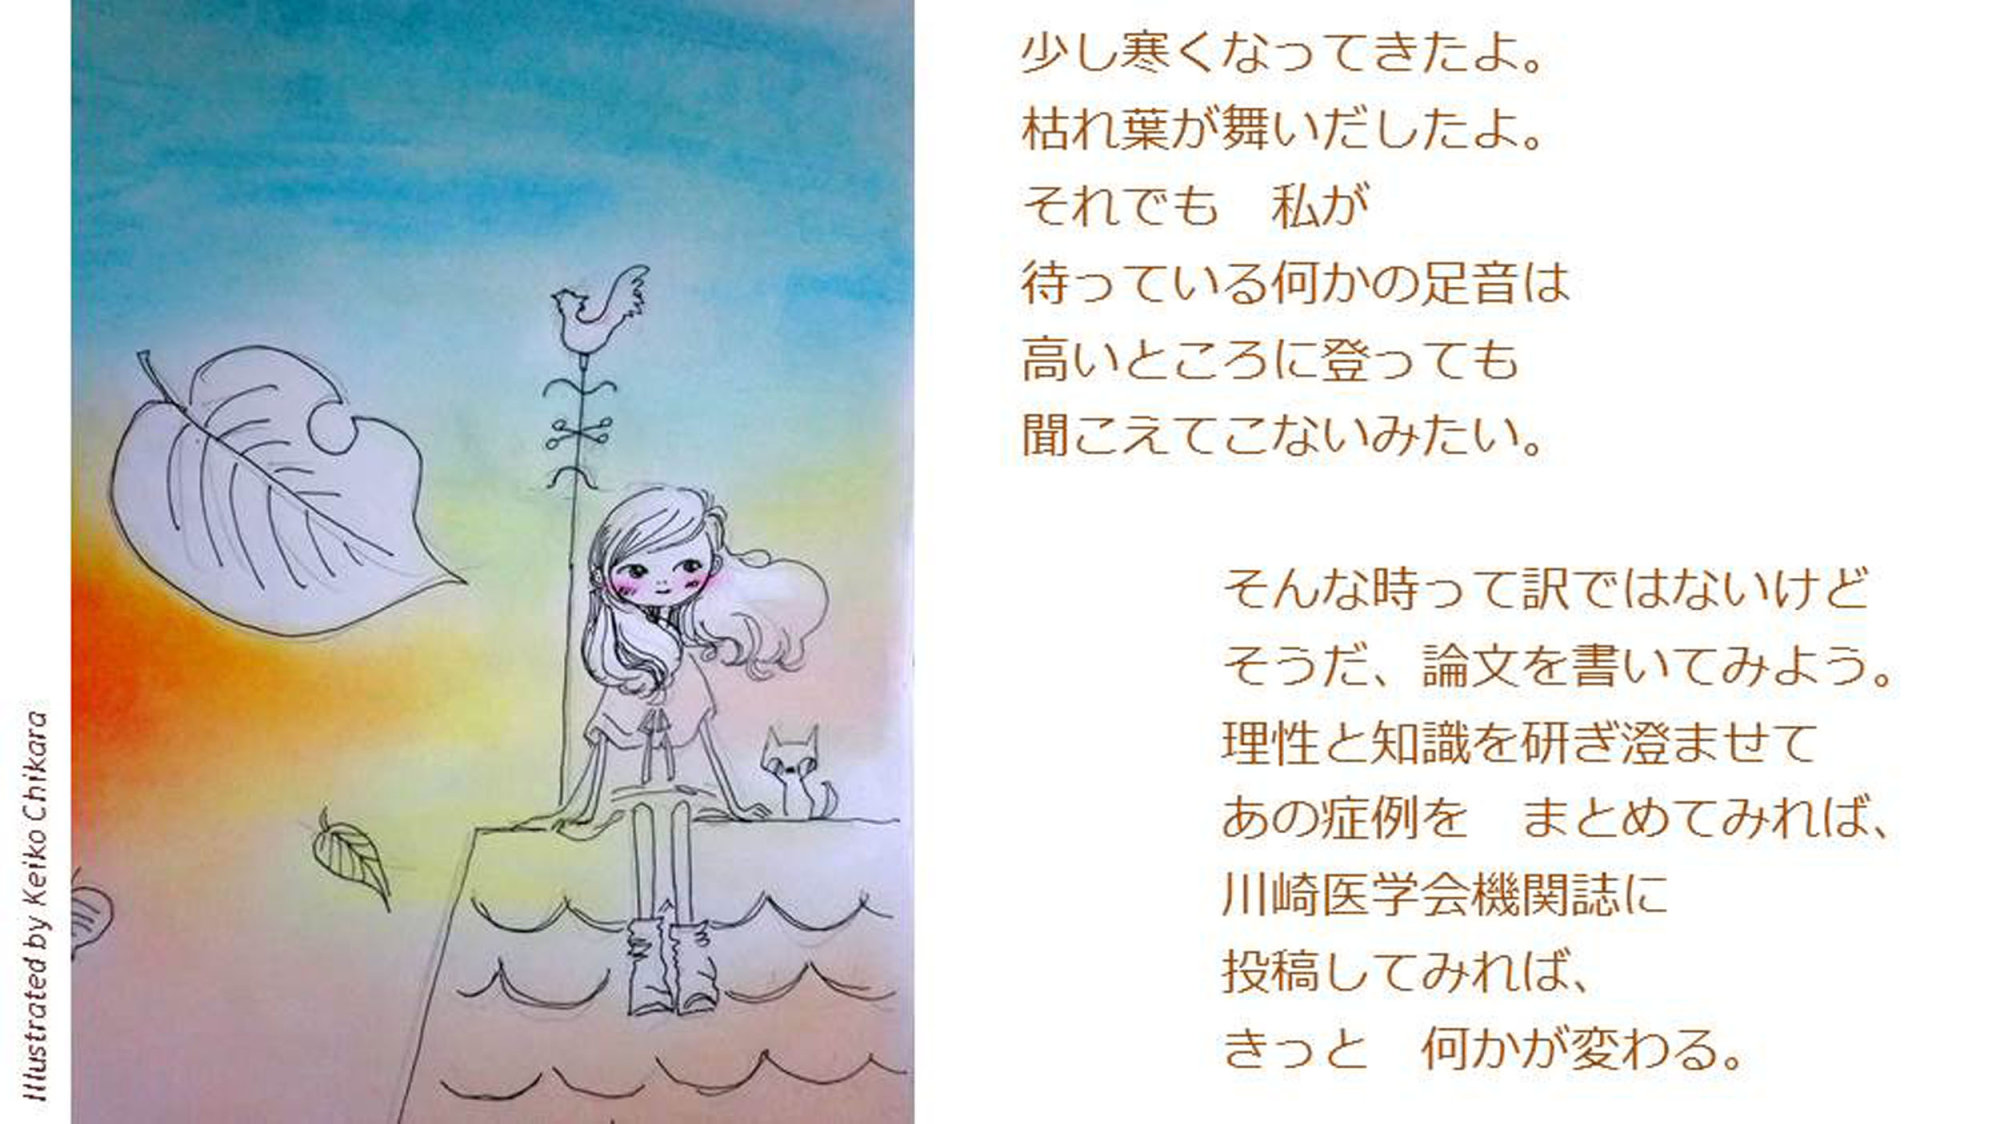 少し寒くなってきたよ。
枯れ葉が舞いだしたよ。
それでも　私が
待っている何かの足音は
高いところに登っても
聞こえてこないみたい。
そんな時って訳ではないけど
そうだ、論文を書いてみよう。
理性と知識を研ぎ澄ませて
あの症例を　まとめてみれば、
川崎医学会機関誌に
投稿してみれば、
きっと　何かが変わる。
Illustrated by Keiko Chikara